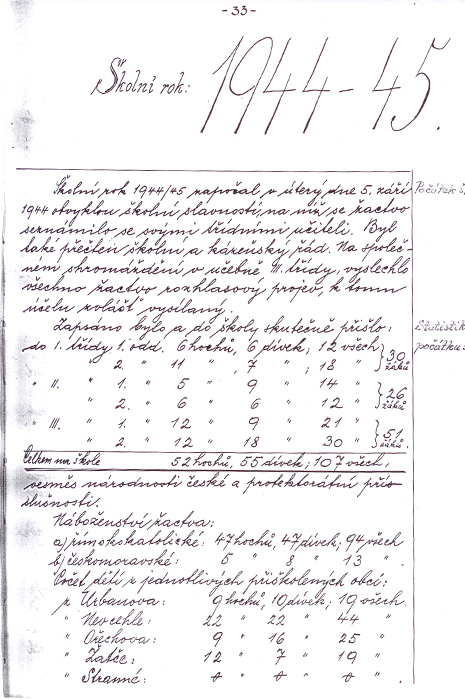 -33-
Školní rok: 1944-45.
Školní rok 1944/45 započal v úterý dne 5. září
Počátek š.
1944 obvyklou školní slavností, na níž se žactvo
seznámilo se svými třídními učiteli. Byl
také přečten školní a kázeňský řád. Na společ-
ném shromáždění v učebně III. třídy, vyslechlo
všechno žactvo rozhlasový projev, k tomu
účelu zvlášť vysílaný.
Zapsáno bylo a do školy skutečně přišlo:
Statistik
do I. třídy 1. odd. 6 hochů, 6 dívek; 12 všech } 30 žáků
počátku
" 2. " 11 " , 7 " ; 18 "
" II. " 1. " 5 " 9 " 14 " } 26 žáků
" 2. " 6 " 6 " 12 "
" III. " 1. " 12 " 9 " 21 " } 51 žáků.
" 2. " 12 " 18 " 30 "
Celkem na škole 52 hochů, 55 dívek; 107 všech,
vesměs národnosti české a protektorátní přís-
lušnosti.
Náboženství žactva:
a) římskokatolické: 47 hochů, 47 dívek; 94 všech
b) českomoravské: 5 " 8 " 13 " .
Počet dětí z jednotlivých přiškolených obcí:
z Urbanova: 9 hochů, 10 dívek; 19 všech.
" Nevcehle: 22 " 22 " 44 "
" Ořechova: 9 " 16 " 25 "
" Žatče: 12 " 7 " 19 "
" Stranné: 0 " 0 " 0 " .